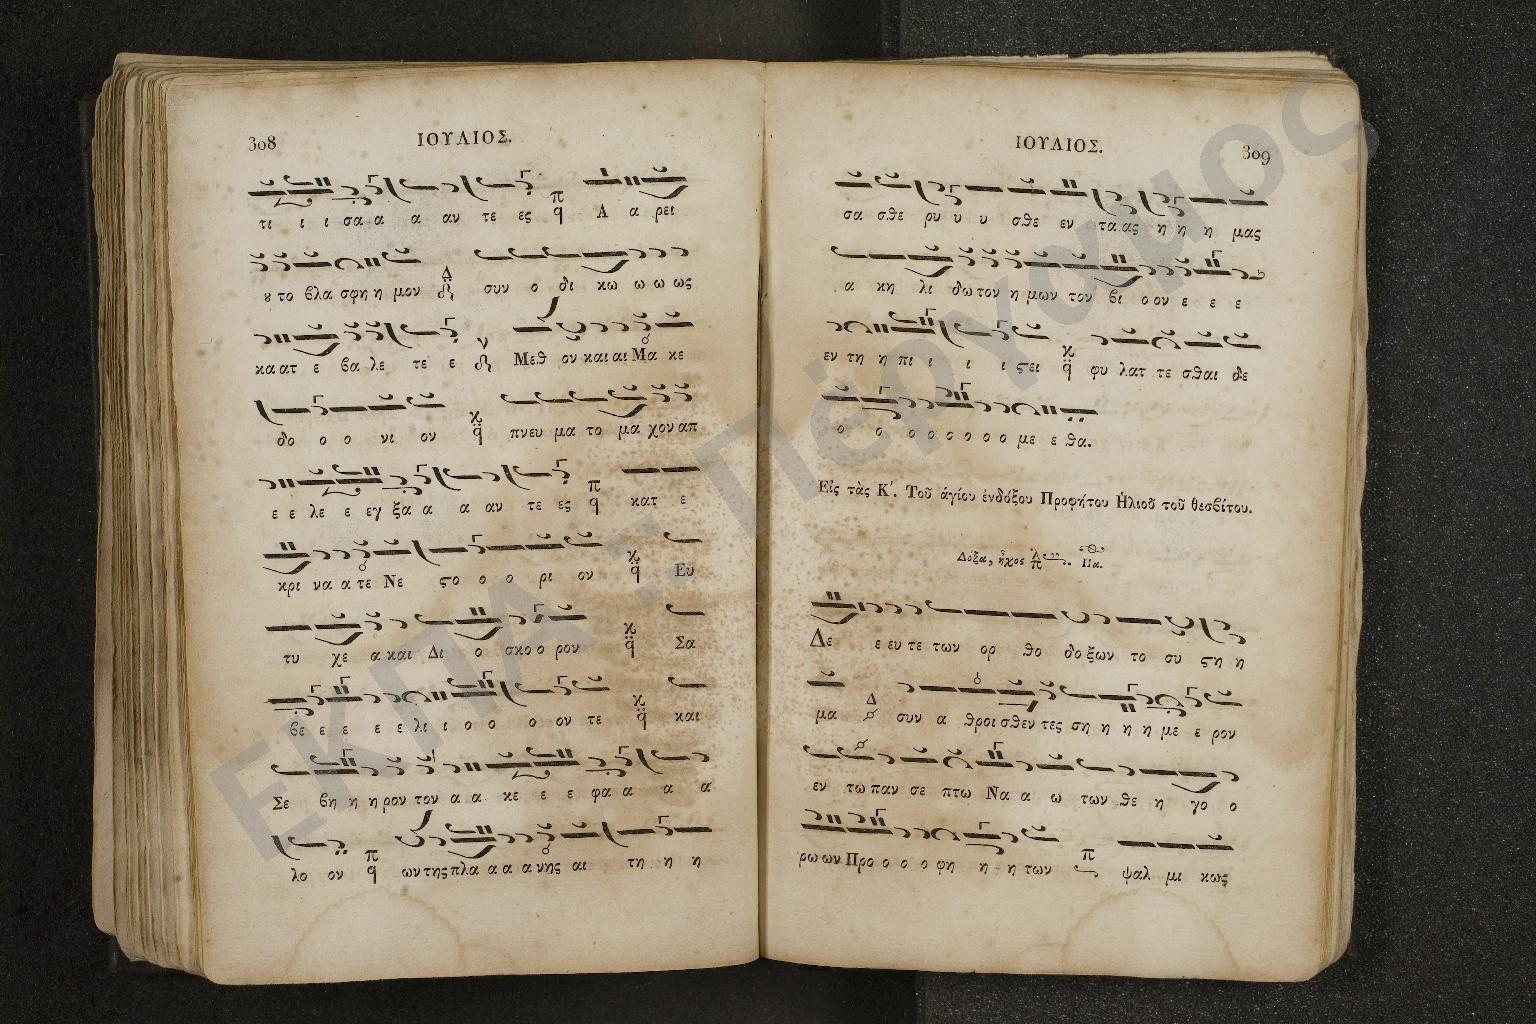 308
ΙΟΥΛΙΟΣ.
τι ι ι σα α α αν τε ες π q Α α ρει
ȣ το βλα σφη η μον Δ συν ο δι κω ω ω ως
κα ατ ε βα λε τε ε ν Μεθ ον και αι Μα κε
δο ο ο νι ον κ q πνευ μα το μα χον απ
ε ε λε ε εγ ξα α α αν τε ες π q κατ ε
κρι να α τε Νε ϛο ο ο ρι ον κ q Ευ
τυ χε α και Δι ο σκο ο ρον κ q Σα
βε ε ε ε ε λι ι ο ο ο ον τε κ q και
Σε βη η η ρον τον α α κε ε ε φα α α α
λο ον π q ων της πλα α α α νης αι τη η η
ΙΟΥΛΙΟΣ.
309
σα σθε ρυ υ υ σθε εν τα ας η η η μας
α κη λι δω τον η μων τον βι ο ον ε ε ε
εν τη η πι ι ι ι ϛει κ q φυ λατ τε σθαι δε
ο ο ο ο ο ο ο ο με ε θα.
Εἰς τὰς Κʹ. Τοῦ ἁγίου ἐνδόξου Προφήτου Ἠλιοῦ τοῦ θεσβίτου.
Δόξα, ἦχος λ π Πα.
Δε ε ευ τε των ορ θο δο ξων το συ ϛη η
μα Δ συν α θροι σθεν τες ση η η η με ε ρον
εν τω παν σε πτω Να α ω των θε η γο ο
ρω ων Προ ο ο ο φη η η των π ψαλ μι κως
ΕΚΠΑ :: Πέργαμος